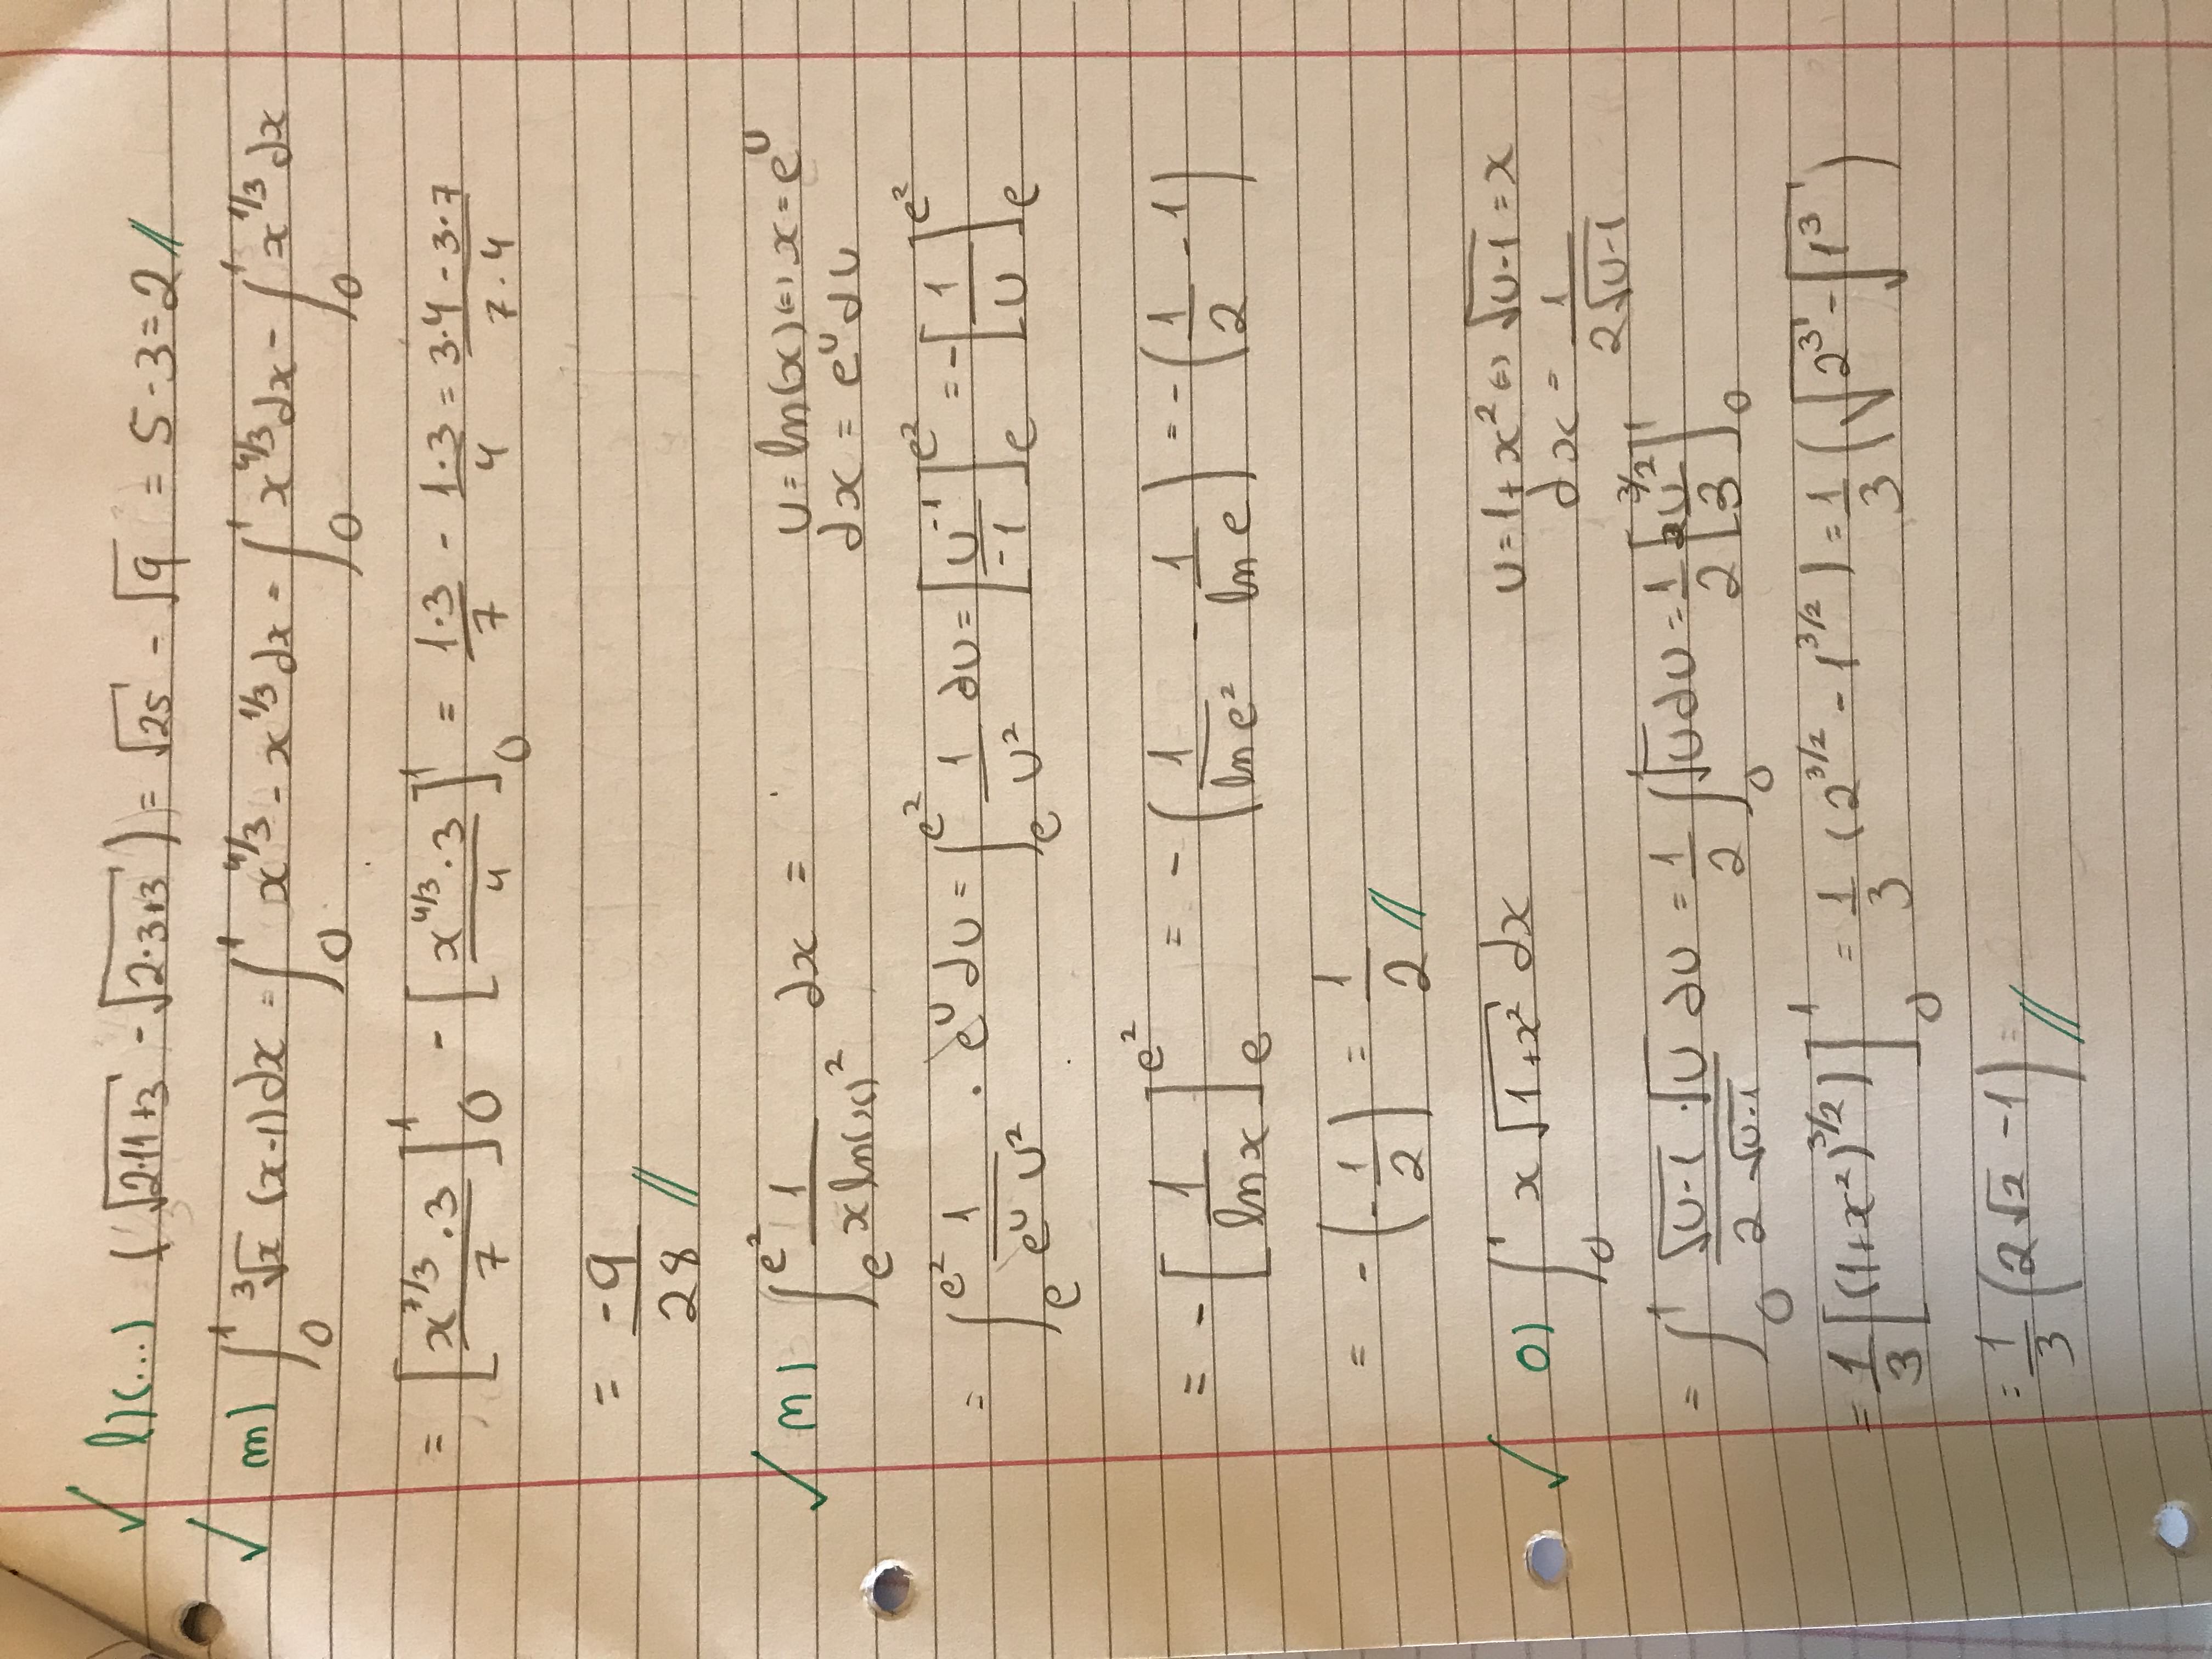 ✓ l) (...) (√(2·11+3) - √(2·3+3)) = √25 - √9 = 5-3=2 //
✓ m) ∫₀¹ ³√x (x-1) dx = ∫₀¹ x^(4/3) - x^(1/3) dx = ∫₀¹ x^(4/3) dx - ∫₀¹ x^(1/3) dx
= [x^(7/3)·3 / 7]₀¹ - [x^(4/3)·3 / 4]₀¹ = 1·3/7 - 1·3/4 = (3·4 - 3·7)/(7·4)
= -9/28 //
✓ n) ∫_e^(e²) 1/(x ln(x)²) dx = u = ln(x) ⇔ x = e^u
dx = e^u du
= ∫_e^(e²) 1/(e^u u²) · e^u du = ∫_e^(e²) 1/u² du = [u^(-1)/-1]_e^(e²) = -[1/u]_e^(e²)
= -[1/ln x]_e^(e²) = -(1/ln e² - 1/ln e) = -(1/2 - 1)
= -(-1/2) = 1/2 //
✓ o) ∫₀¹ x √(1+x²) dx u = 1+x² ⇔ √(u-1) = x
dx = 1/(2√(u-1))
= ∫₀¹ (√(u-1)·√u)/(2√(u-1)) du = 1/2 ∫₀¹ √u du = 1/2 [2u^(3/2)/3]₀¹
= 1/3 [(1+x²)^(3/2))]₀¹ = 1/3 (2^(3/2) - 1^(3/2)) = 1/3 (√(2³) - √(1³))
= 1/3 (2√2 - 1) = //